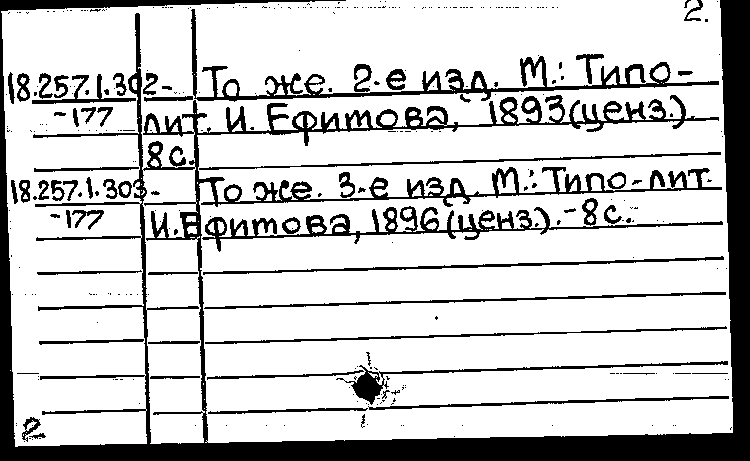 2.
18.257.1.302- То же. 2-е изд. М.: Типо-
-177 лит. И. Ефимова, 1893(ценз.).
8 с.
18.257.1.303- То же. 3-е изд. М.: Типо-лит.
-177 И. Ефимова, 1896(ценз.). -8 с.
2